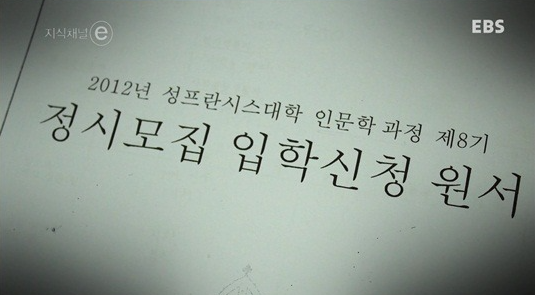 지식채널 e
EBS
2012년 성프란시스대학 인문학 과정 제8기
정시모집 입학신청 원서